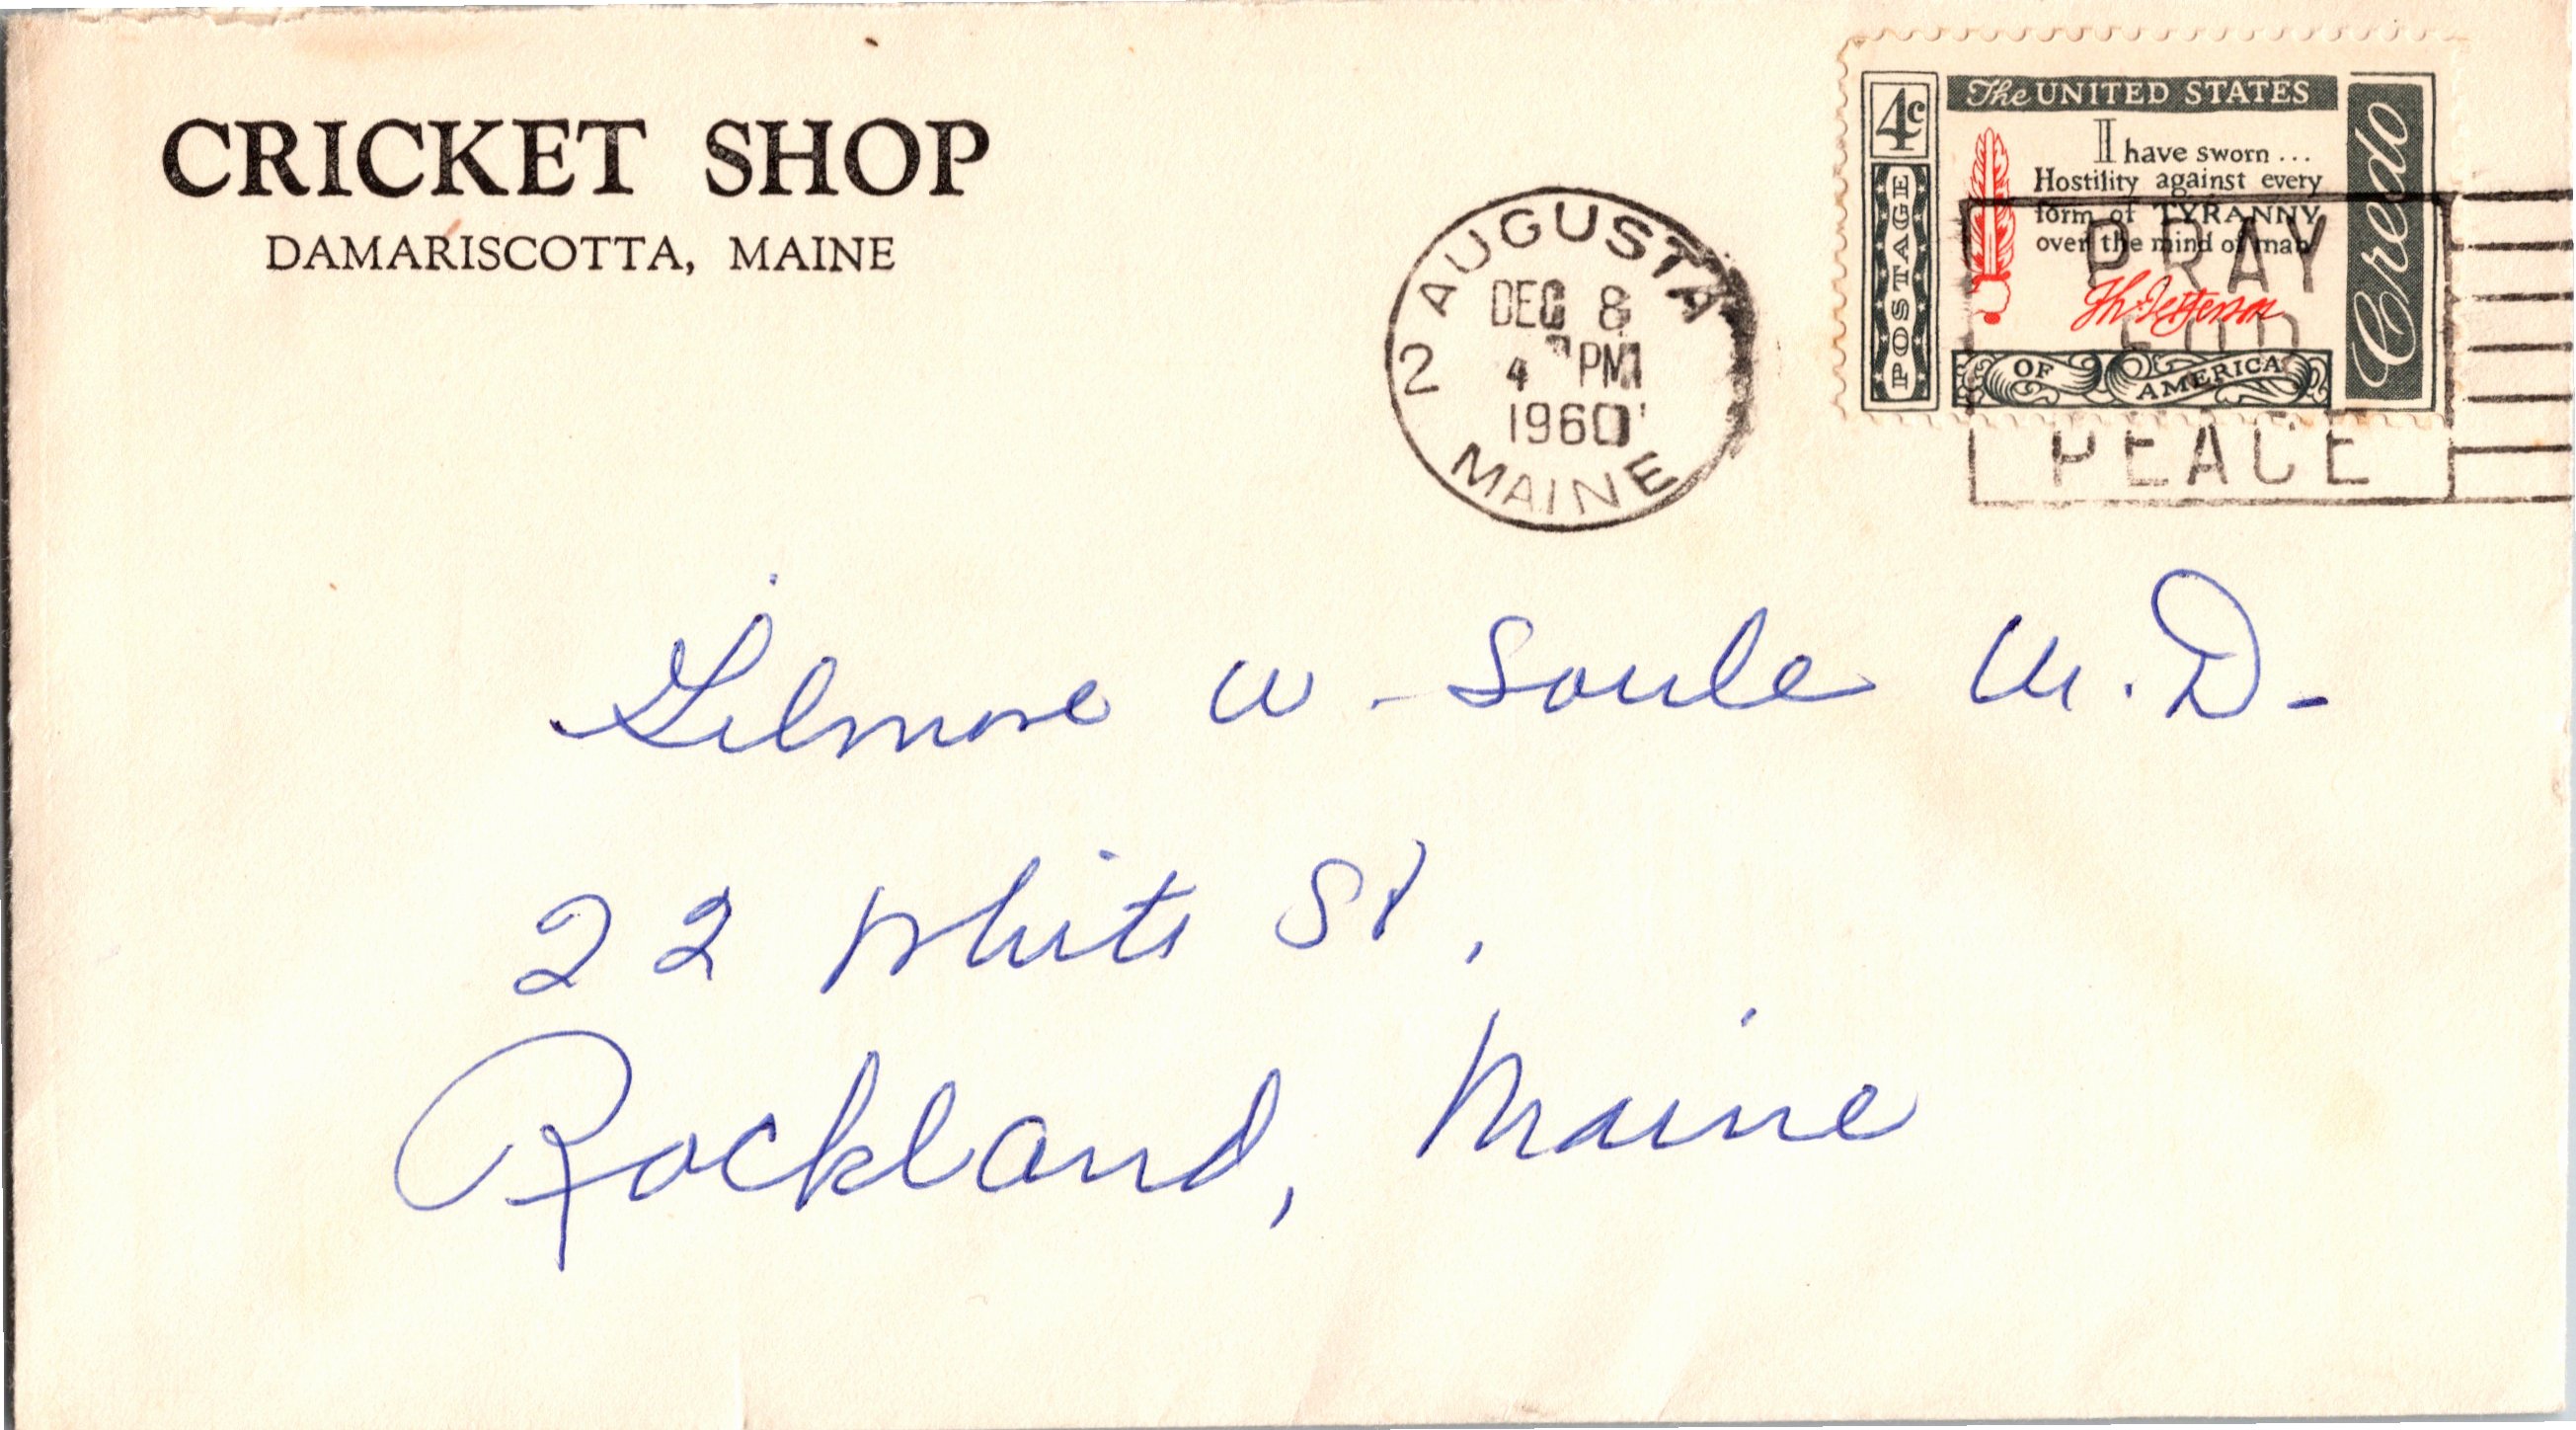 CRICKET SHOP
DAMARISCOTTA, MAINE
2 AUGUSTA
DEC 8
4 PM
1960
MAINE
4c
POSTAGE
The UNITED STATES
I have sworn ...
Hostility against every
form of TYRANNY
over the mind of man
Th Jefferson
OF AMERICA
Credo
PRAY
FOR
PEACE
Gilmore W. Soule M.D.
22 White St.
Rockland, Maine